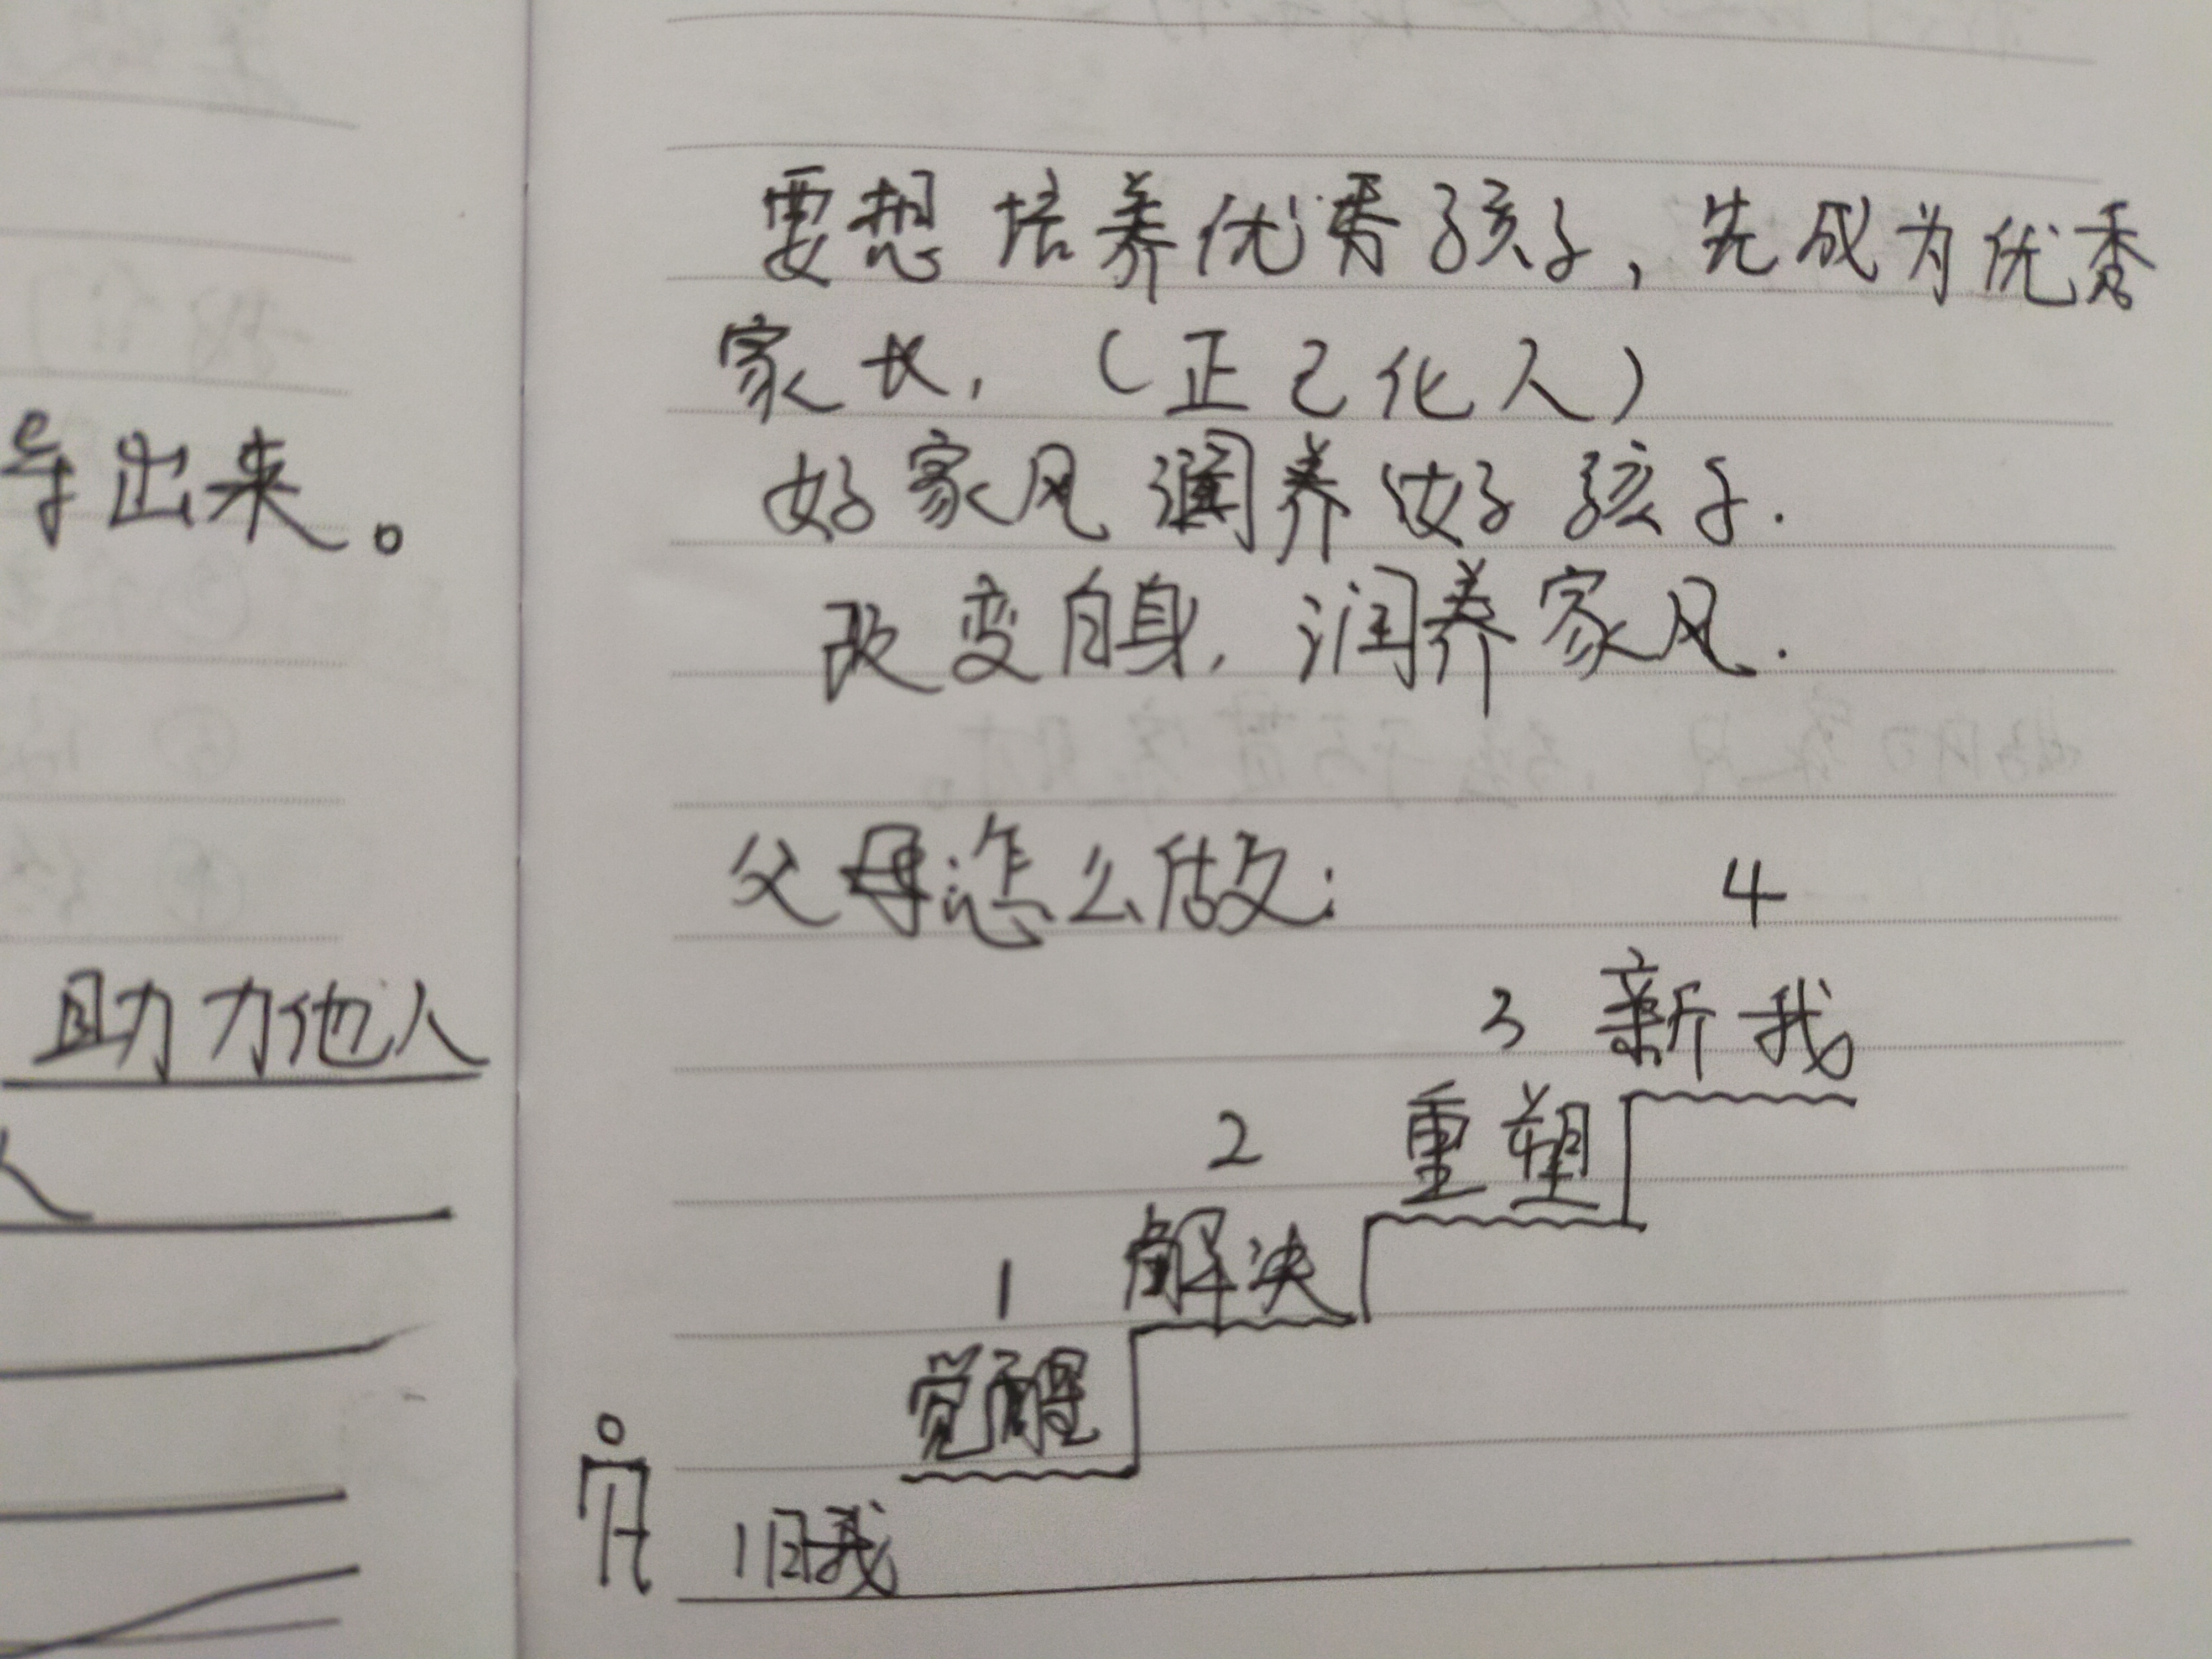 要想培养优秀孩子，先成为优秀
家长，（正己化人）
好家风润养好孩子.
改变自身，润养家风.
父母怎么做：
4
3 新我
2 重塑
1 解决
觉醒
旧我
导出来。
助力他人
人